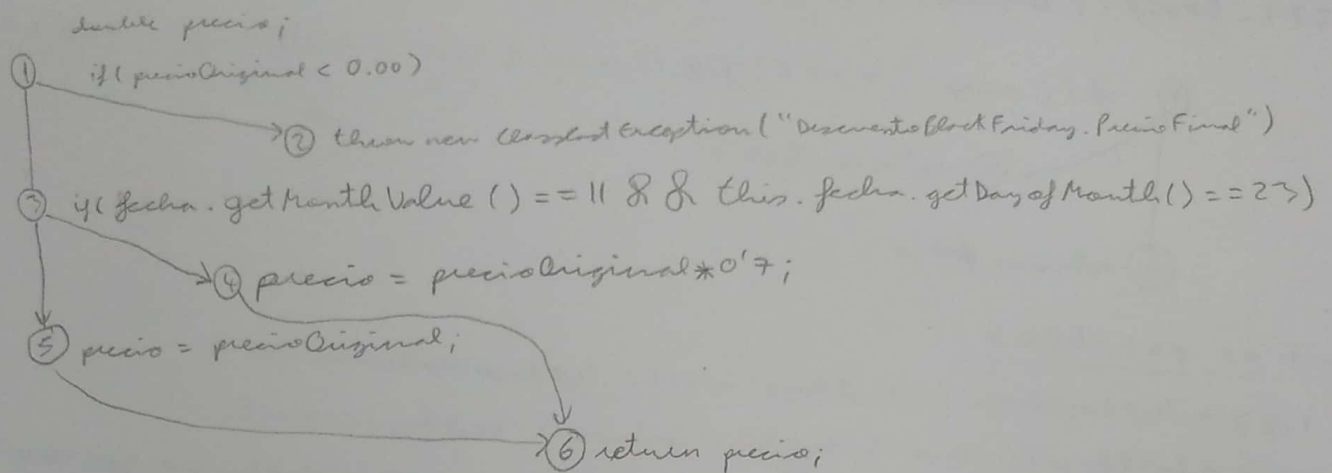 double precio;
① if( precioOriginal < 0.00)
② throw new ClassCastException("DescuentoBlackFriday.PrecioFinal")
③ if( fecha.getMonthValue() == 11 && this.fecha.getDayofMonth() == 23)
④ precio = precioOriginal * 0'7;
⑤ precio = precioOriginal;
⑥ return precio;